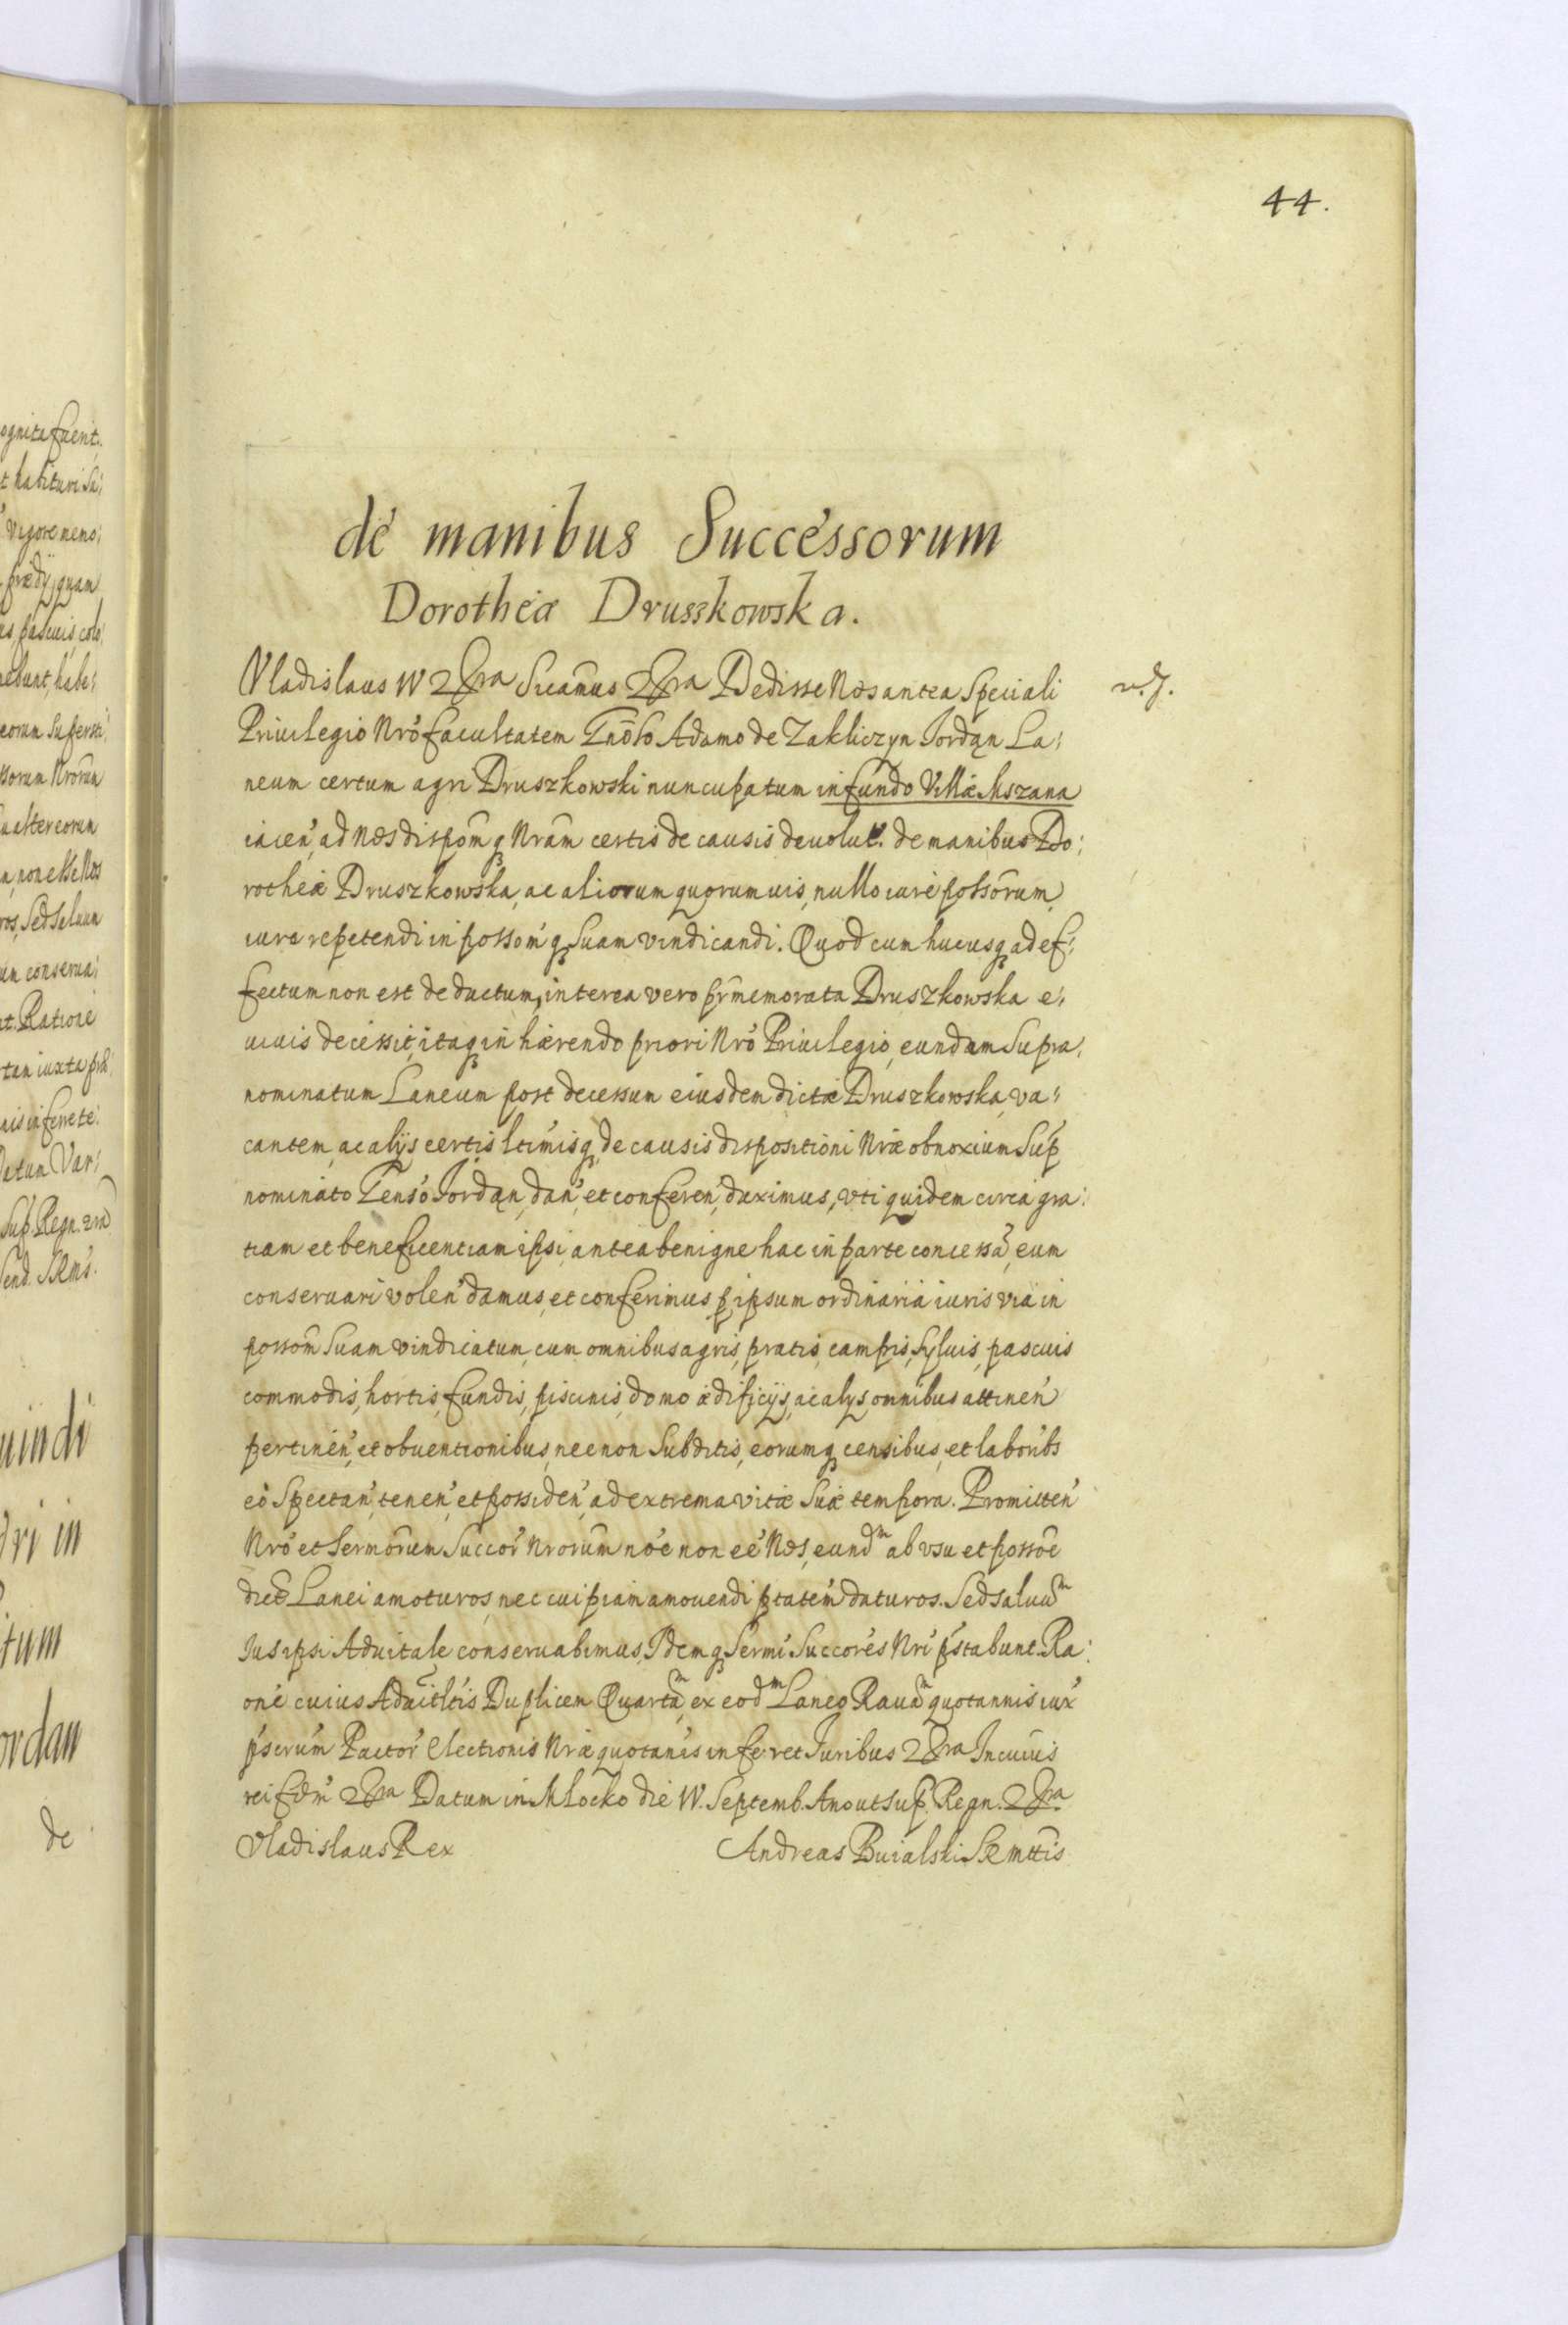 44.
de manibus Successorum
Dorotheæ Druszkowska.
Vladislaus IV 2 Sicamus 2 Dedisse Nos antea Speciali
Priuilegio Nro facultatem Gnoso Adamo de Zakliczyn Jordan La:
neum certum agri Druszkowski nuncupatum in fundo Villæ Mszana
iacen ad Nos dispom q Nram certis de causis deuolut. de manibus Do:
rotheæ Druszkowska, ac aliorum quorumuis, nullo iure possorum,
iure repetendi in possom q Suam vindicandi. Quod cum hucusq ad ef:
fectum non est deductum, interea vero prmemorata Druszkowska e:
uiuis decessit, itaq in hærendo priori Nro Priuilegio, eundem Supra:
nominatum Laneum post decessum eiusdem dictæ Druszkowska, va:
cantem, ac alijs certis ltimis q de causis dispositioni Nræ obnoxium Sup
nominato Genso Jordan, dan et conferen duximus, vti quidem circa gra:
tiam et beneficentiam ipsi, antea benigne hac in parte concessa, eum
conseruari volen damus, et conferimus p ipsum ordinaria iuris via in
possom Suam vindicatum, cum omnibus agris, pratis, campis, Syluis, pascuis
commodis, hortis, fundis, piscinis, domo ædificijs, ac alys omnibus attinen
pertinen, et obuentionibus, necnon Subditis, eorumq censibus, et laboribs
eo Spectan, tenen, et possiden, ad extrema vitæ Suæ tempora. Promitten
Nro et Sermorum Succor Nrorum noe non ee Nos, eundm ab vsu et possoe
dict Lanei amoturos, nec cuipiam amouendi ptatem daturos. Sed saluum
Ius ipsi Aduitale conseruabimus, Idemq Sermi Succores Nri pstabunt. Ra:
one cuius Aduitltis Duplicem Quartam ex eodm Laneo Rauam quotannis iux
pscrum Pactor electionis Nræ quotanis inferet Iuribus 2 In cuius
rei fidm 2 Datum in Mlocko die IV. Septemb. Ano ut Sup. Regn. 2
Vladislaus Rex Andreas Buialski SRMttis